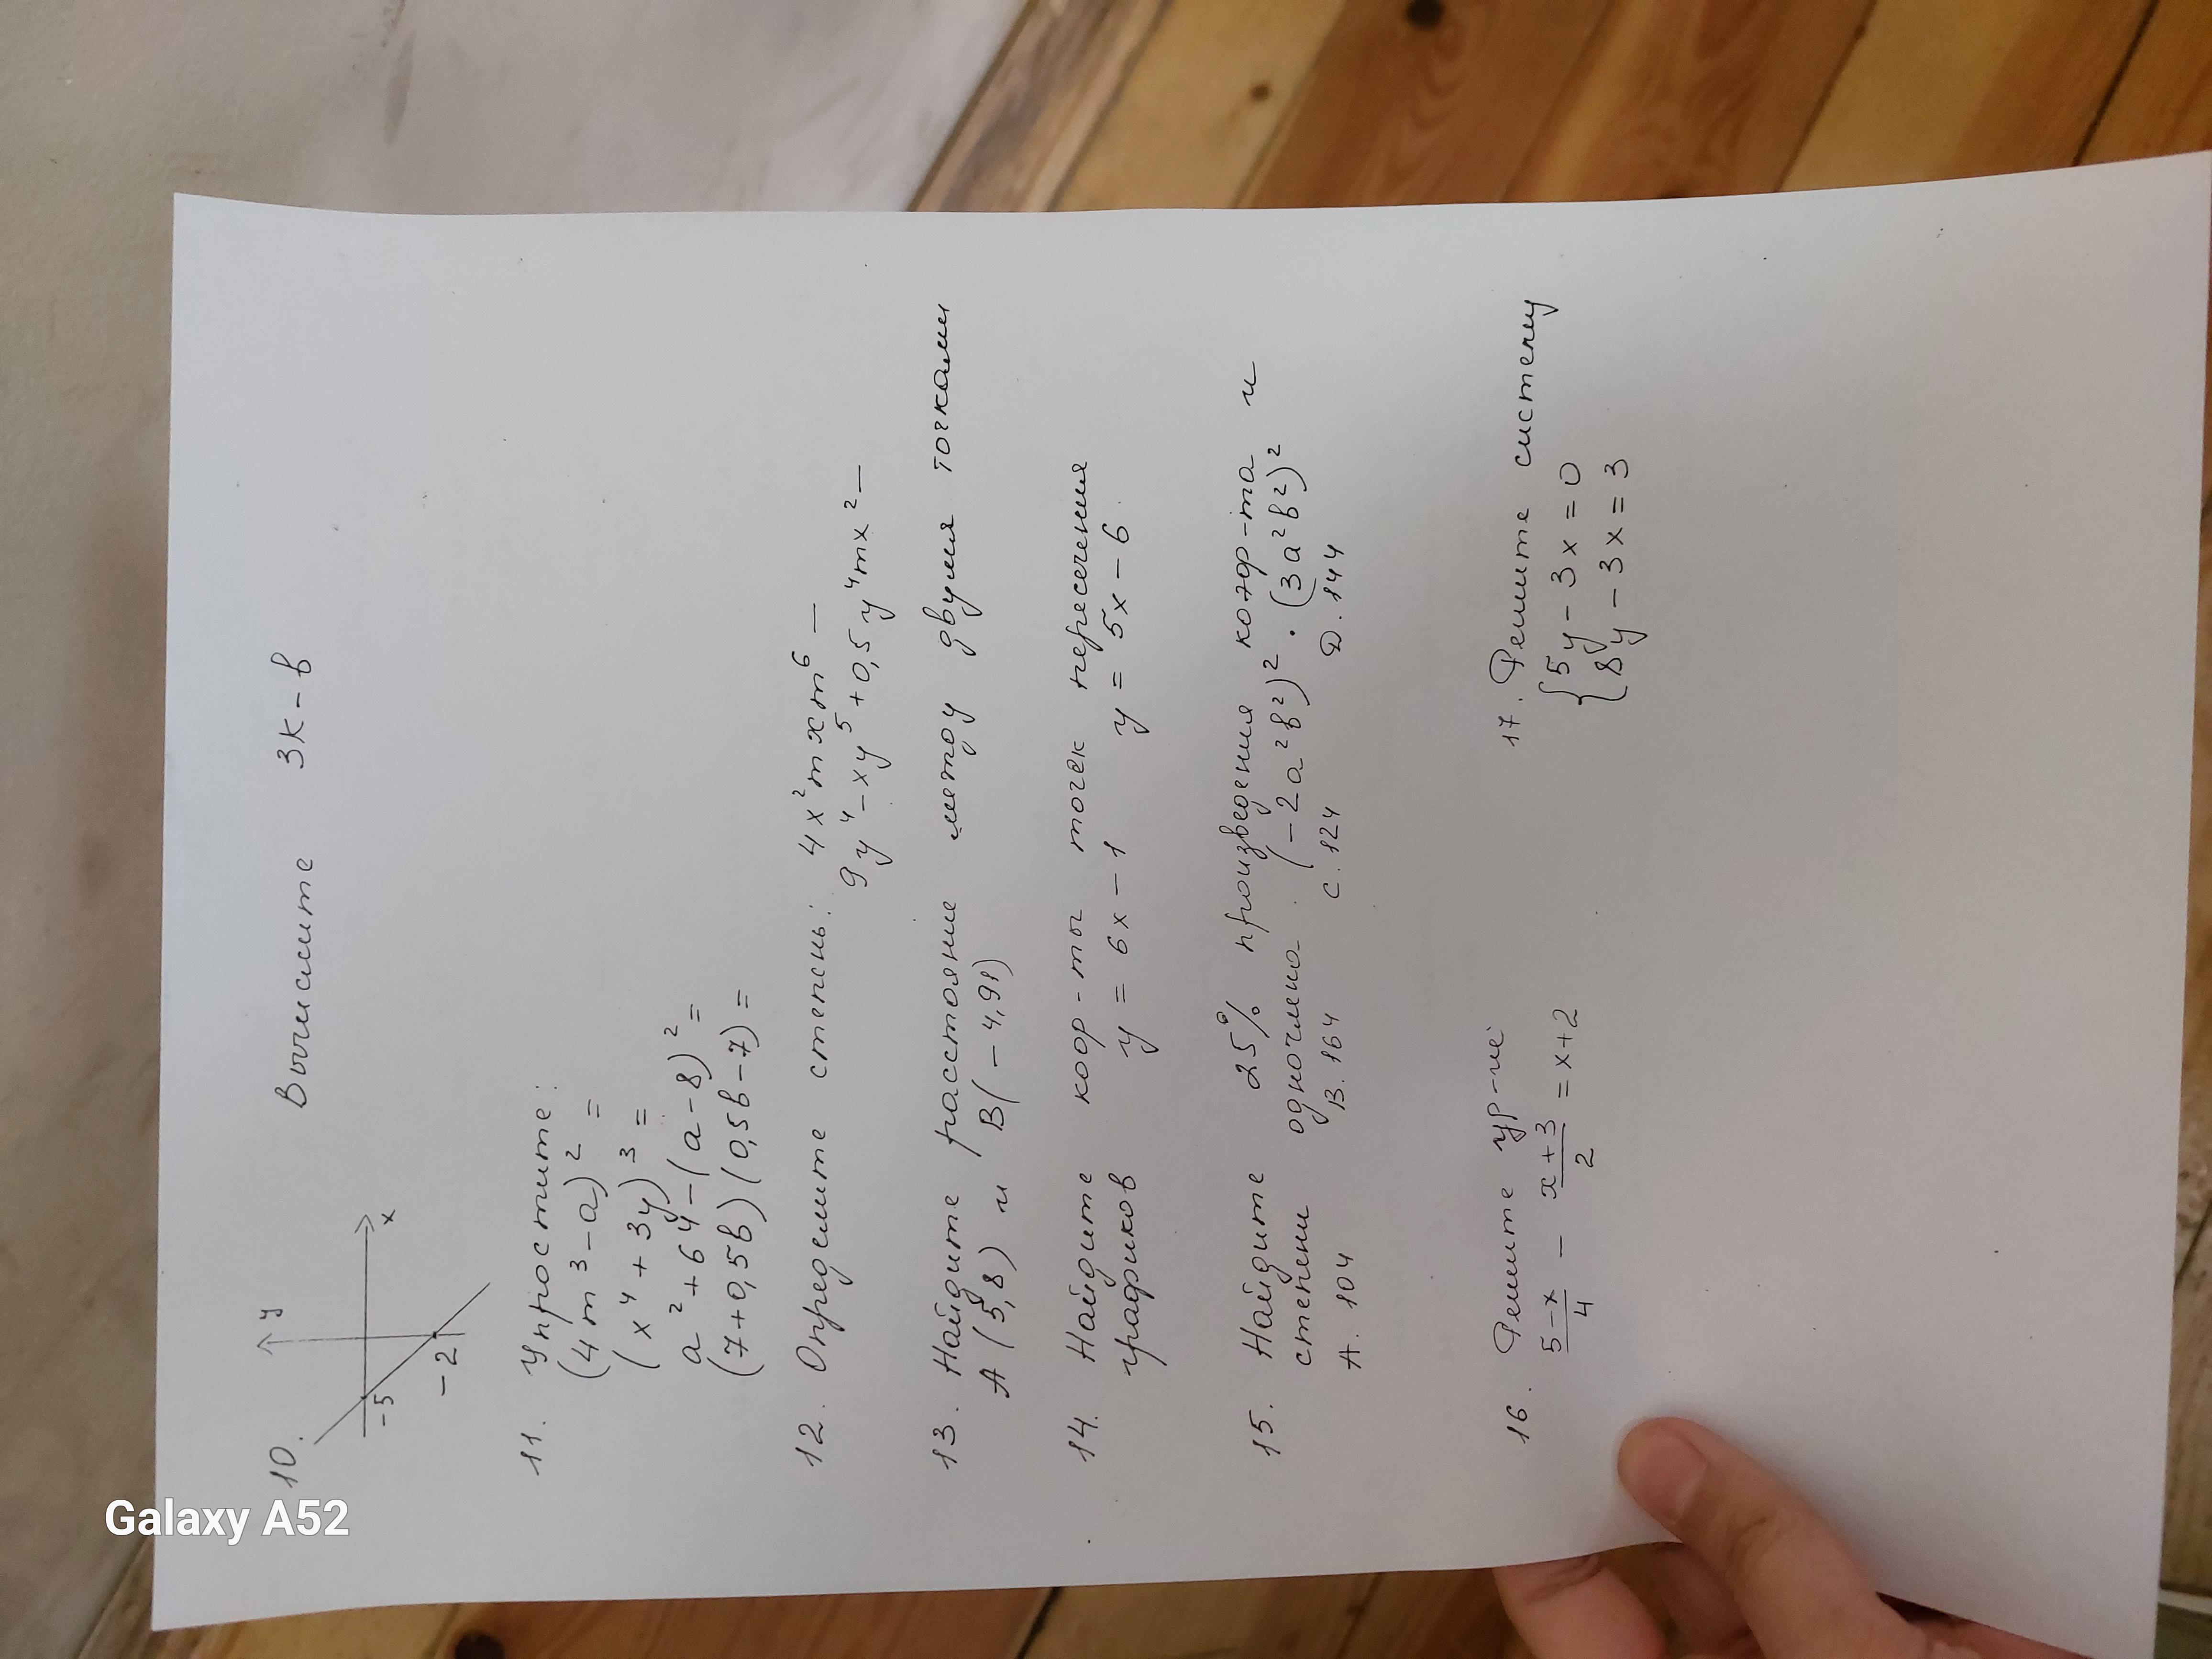 10.
y
x
-5
-2
Вычислите 3к-в
11. Упростите:
(4m³-a)² =
(x⁴+3y)³ =
a²+64-(a-8)² =
(7+0,5b)(0,5b-7) =
12. Определите степень: 4x²mxm⁶ –
9y⁴-xy⁵+0,5y⁴mx² –
13. Найдите расстояние между двумя точками
A(5,8) и B(-4,91)
14. Найдите коор-ты точек пересечения
графиков y = 6x-1 y = 5x-6
15. Найдите 25% произведения коэф-та и
степени одночлена (-2a²b²)² · (3a²b²)²
A. 104 B. 164 C. 124 D. 144
16. Решите ур-ие
5-x/4 - x+3/2 = x+2
17. Решите систему
{5y-3x=0
8y-3x=3
Galaxy A52